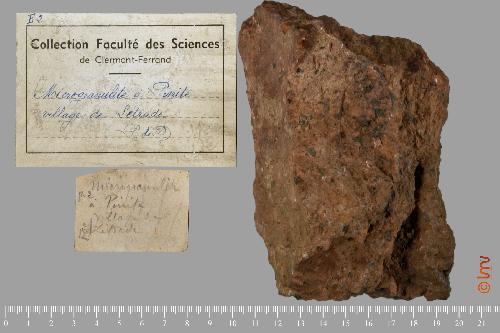 E 2
Collection Faculté des Sciences
de Clermont-Ferrand
Microgranulite à Pinite
village de
(P. de D.)
à Pinite
village de
0 1 2 3 4 5 6 7 8 9 10 11 12 13 14 15 16 17 18 19 20 21